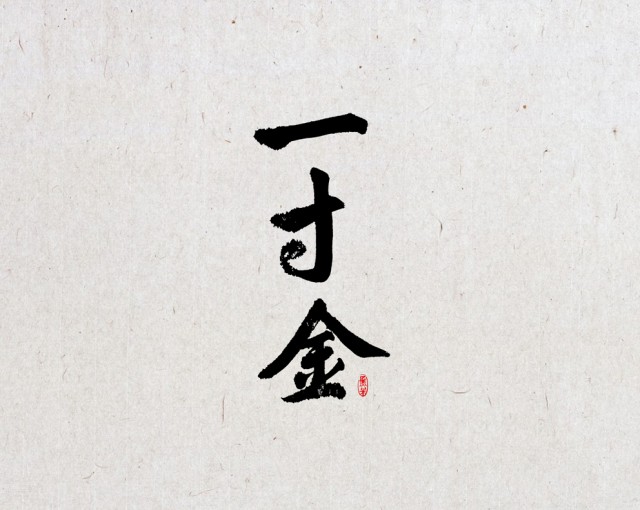 一寸金